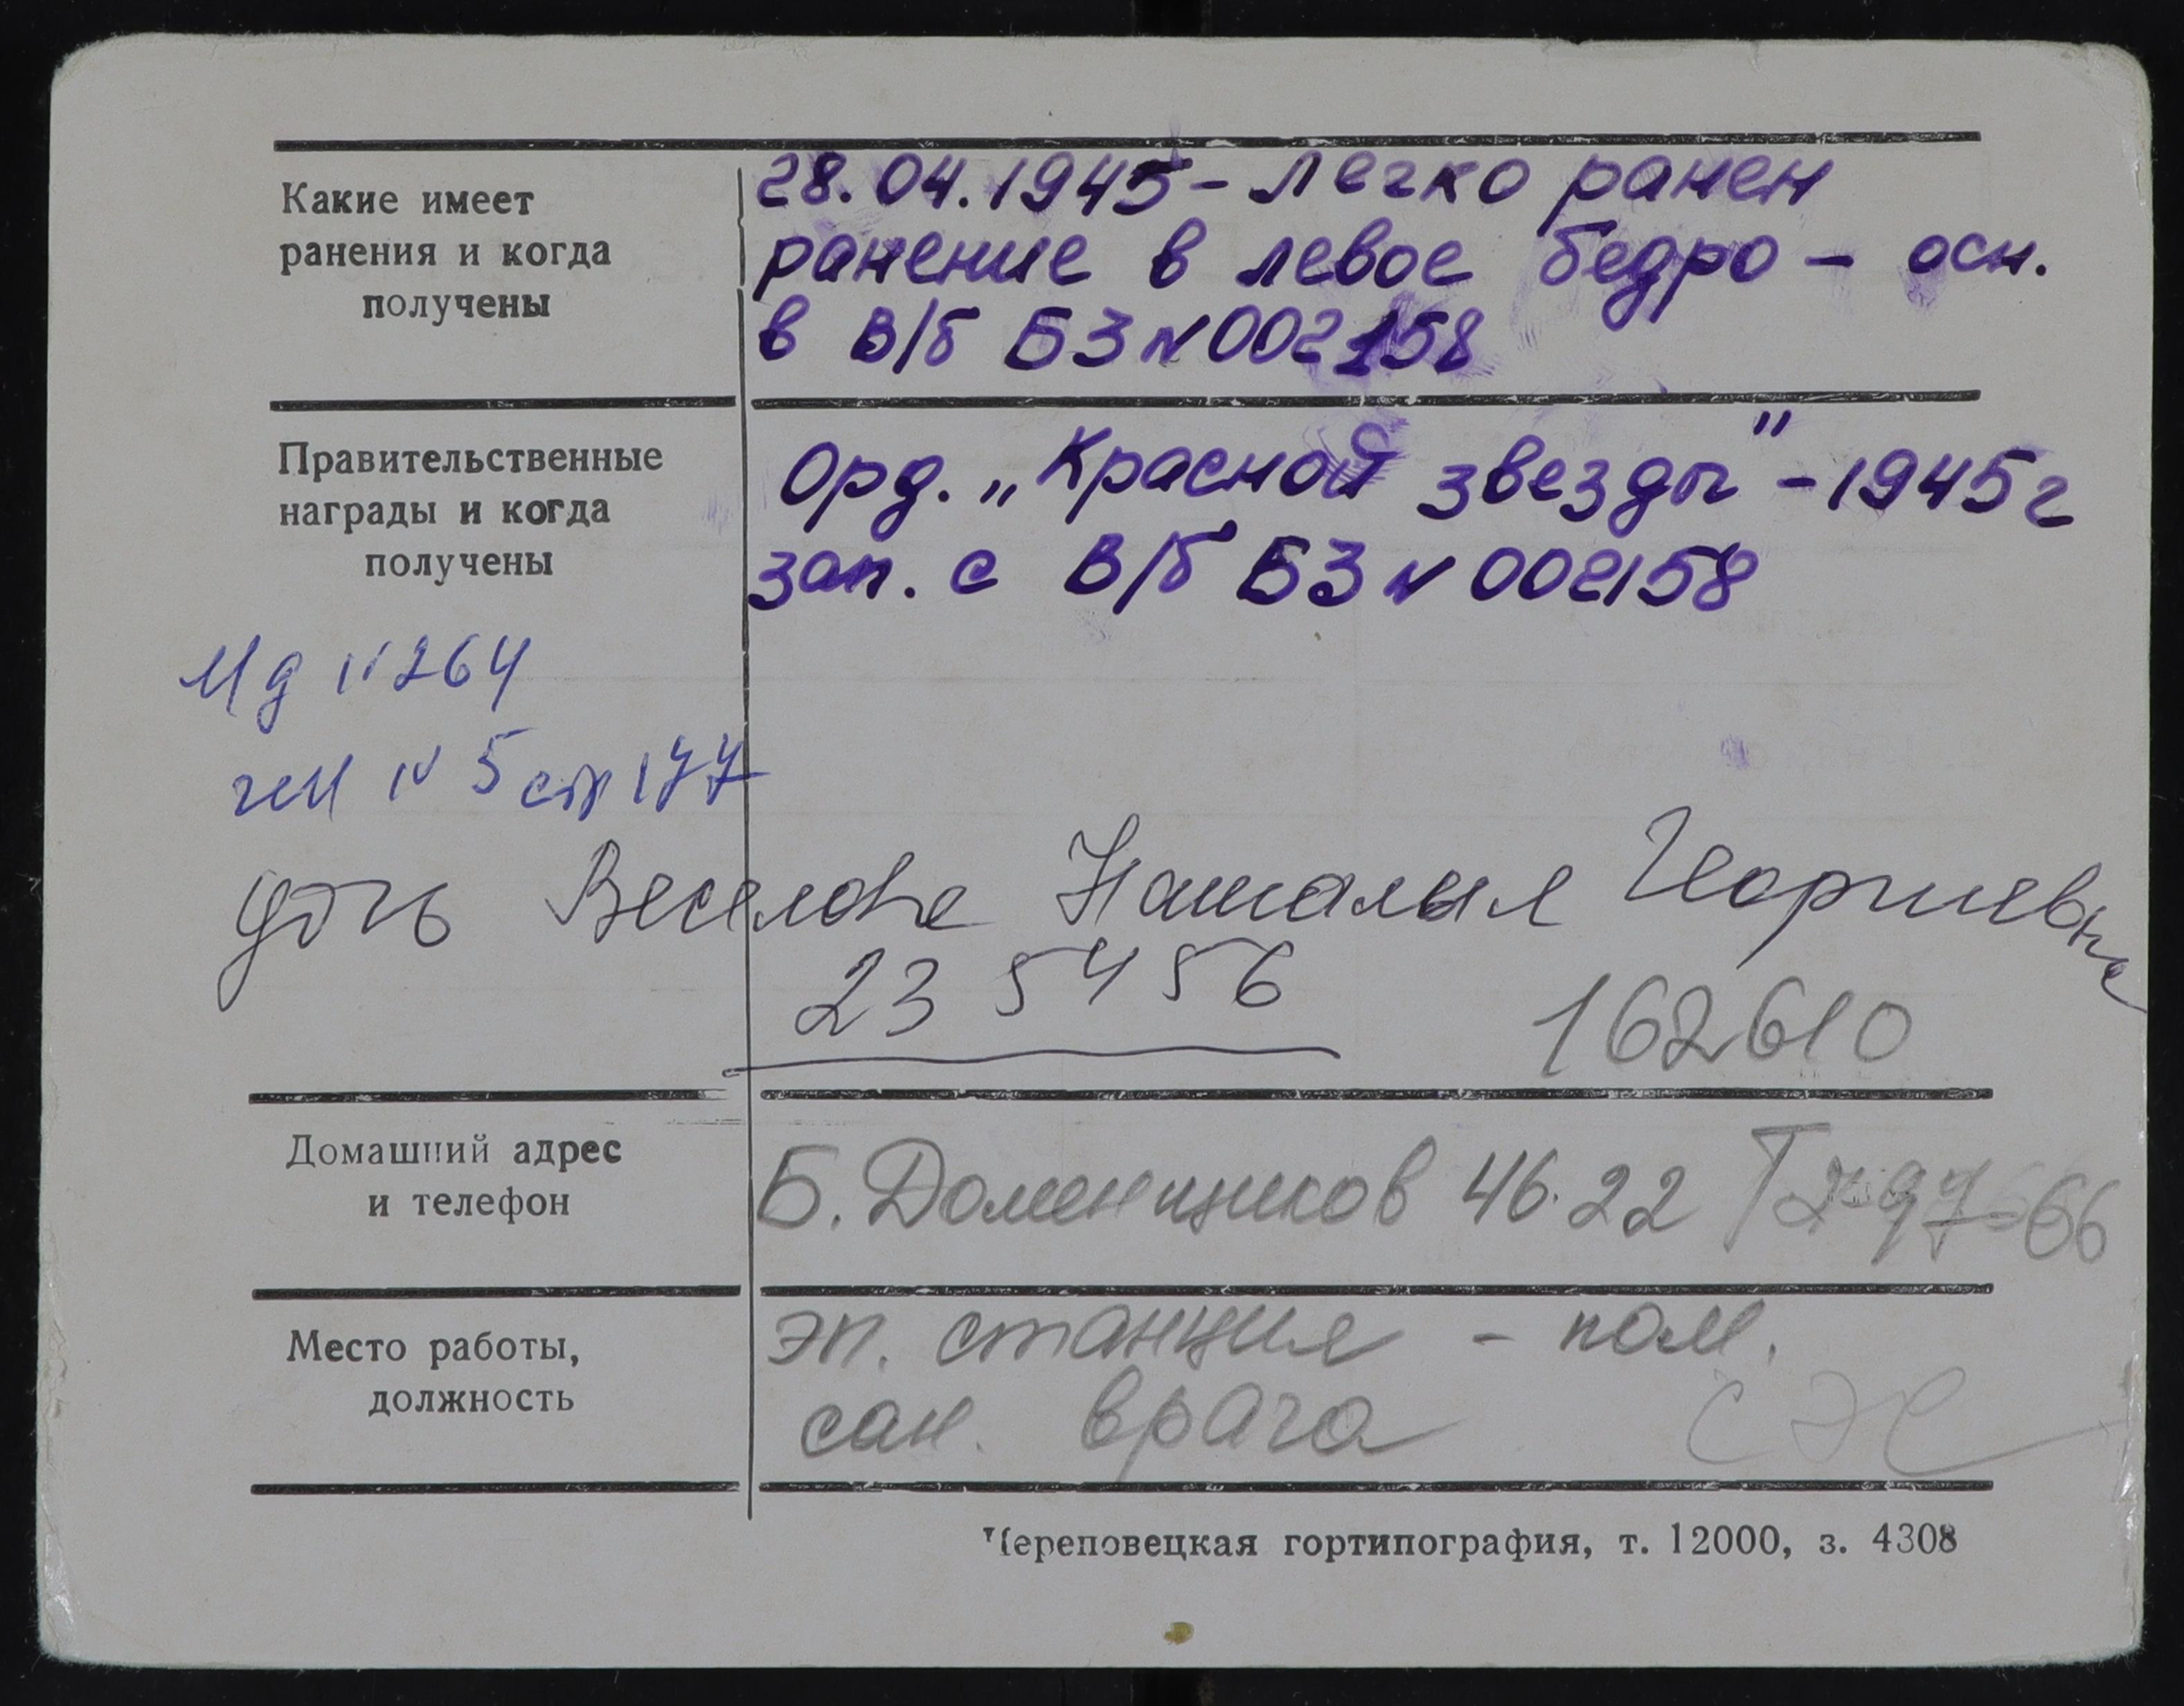 Какие имеет
ранения и когда
получены
28.04.1945 - легко ранен
ранение в левое бедро - осн.
в в/б БЗ № 002158
Правительственные
награды и когда
получены
Орд. „Красной звезды" - 1945г
зап. с в/б БЗ № 002158
Мд № 264
стр 177
дочь Веселова Наталья Георгиевна
235456
162610
Домашний адрес
и телефон
Б. Доменщиков 46.22 Т 2-97-66
Место работы,
должность
эп. станция - пом.
сан. врача
СЭС
Череповецкая гортипография, т. 12000, з. 4308